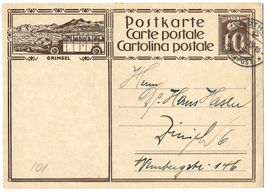 Postkarte
Carte postale
Cartolina postale
10
GRIMSEL
Herrn
Dr. Hans
Zürich 6
146
101